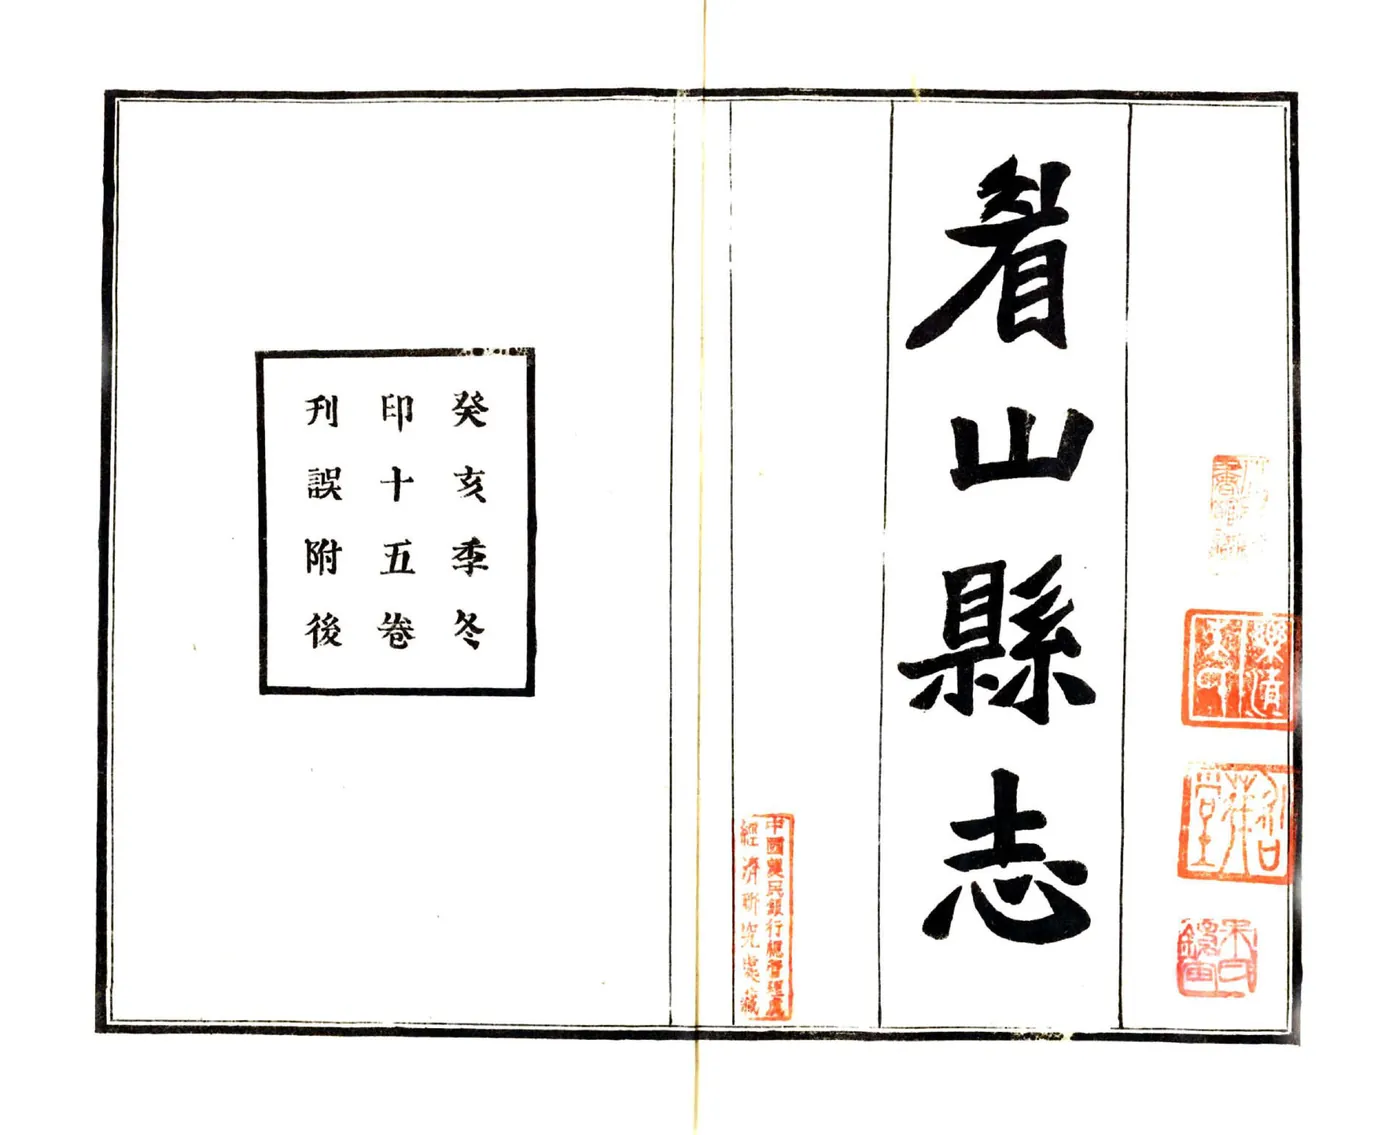 眉山縣志
中國農民銀行總管理處
經濟研究處藏
癸亥季冬
印十五卷
刋誤附後